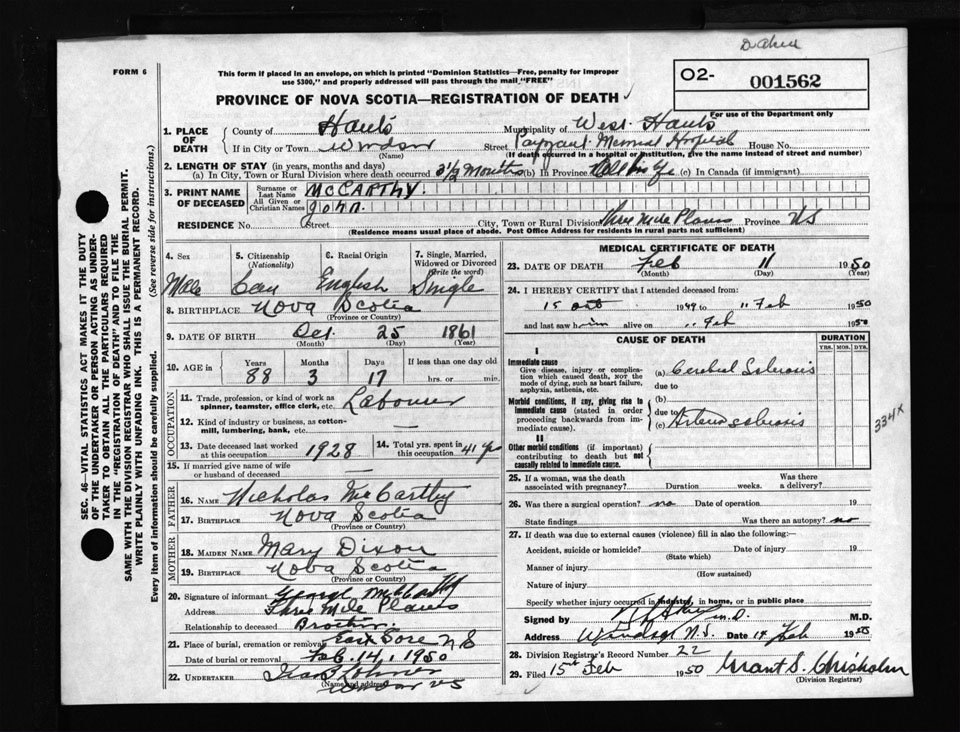 FORM 6
This form if placed in an envelope, on which is printed "Dominion Statistics—Free, penalty for improper
use $300," and properly addressed will pass through the mail "FREE"
O2- 001562
PROVINCE OF NOVA SCOTIA—REGISTRATION OF DEATH
For use of the Department only
1. PLACE OF DEATH
County of Hants Municipality of West Hants
If in City or Town Windsor Street Payzant Memorial Hospital House No.
(Name) (If death occurred in a hospital or institution, give the name instead of street and number)
2. LENGTH OF STAY (in years, months and days)
(a) In City, Town or Rural Division where death occurred 3½ Months (b) In Province All his life (c) in Canada (if immigrant)
3. PRINT NAME OF DECEASED
Surname or Last Name MCCARTHY.
All Given or Christian Names John.
RESIDENCE No. Street City, Town or Rural Division Three Mile Plains Province NS
(Residence means usual place of abode. Post Office Address for residents in rural parts not sufficient)
4. Sex Male
5. Citizenship (Nationality) Can
6. Racial Origin English
7. Single, Married, Widowed or Divorced (Write the word) Single
8. BIRTHPLACE Nova Scotia
(Province or Country)
9. DATE OF BIRTH Dec. 25 1861
(Month) (Day) (Year)
10. AGE in Years Months Days If less than one day old
88 3 17 hrs. or min.
OCCUPATION
11. Trade, profession, or kind of work as spinner, teamster, office clerk, etc. Labourer
12. Kind of industry or business, as cotton-mill, lumbering, bank, etc.
13. Date deceased last worked at this occupation 1928
14. Total yrs. spent in this occupation 41 yrs
15. If married give name of wife or husband of deceased —
FATHER
16. NAME Nicholas McCarthy
17. BIRTHPLACE Nova Scotia
(Province or Country)
MOTHER
18. MAIDEN NAME Mary Dixon
19. BIRTHPLACE Nova Scotia
(Province or Country)
20. Signature of informant George McCarthy
Address Three Mile Plains
Relationship to deceased Brother.
21. Place of burial, cremation or removal East Gore N S
Date of burial or removal Feb. 14, 1950
22. UNDERTAKER
(Name and address) Windsor NS
MEDICAL CERTIFICATE OF DEATH
23. DATE OF DEATH Feb 11 1950
(Month) (Day) (Year)
24. I HEREBY CERTIFY that I attended deceased from:
15 Oct 1949 to 11 Feb 1950
and last saw him alive on 11 Feb 1950
CAUSE OF DEATH DURATION
YRS. MOS. DYS.
I
Immediate cause
Give disease, injury or complication which caused death, nor the mode of dying, such as heart failure, asphyxia, asthenia, etc.
(a) Cerebral Sclerosis
due to
Morbid conditions, if any, giving rise to immediate cause (stated in order proceeding backwards from immediate cause).
(b)
due to
(c) Arteriosclerosis
334X
II
Other morbid conditions (if important) contributing to death but not causally related to immediate cause.
25. If a woman, was the death associated with pregnancy? Duration weeks. Was there a delivery?
26. Was there a surgical operation? no Date of operation 19
State findings Was there an autopsy? no
27. If death was due to external causes (violence) fill in also the following:—
Accident, suicide or homicide? Date of injury 19
(State which)
Manner of injury
(How sustained)
Nature of injury
Specify whether injury occurred in industry, in home, or in public place
Signed by M.D. M.D.
Address Windsor N.S. Date 14 Feb 1950
28. Division Registrar's Record Number 22
29. Filed 15th Feb 1950 Grant S. Chisholm
(Division Registrar)
SEC. 46—VITAL STATISTICS ACT MAKES IT THE DUTY
OF THE UNDERTAKER OR PERSON ACTING AS UNDER-
TAKER TO OBTAIN ALL THE PARTICULARS REQUIRED
IN THE "REGISTRATION OF DEATH" AND TO FILE THE
SAME WITH THE DIVISION REGISTRAR WHO SHALL ISSUE THE BURIAL PERMIT.
WRITE PLAINLY WITH UNFADING INK. THIS IS A PERMANENT RECORD.
Every item of information should be carefully supplied. (See reverse side for instructions.)